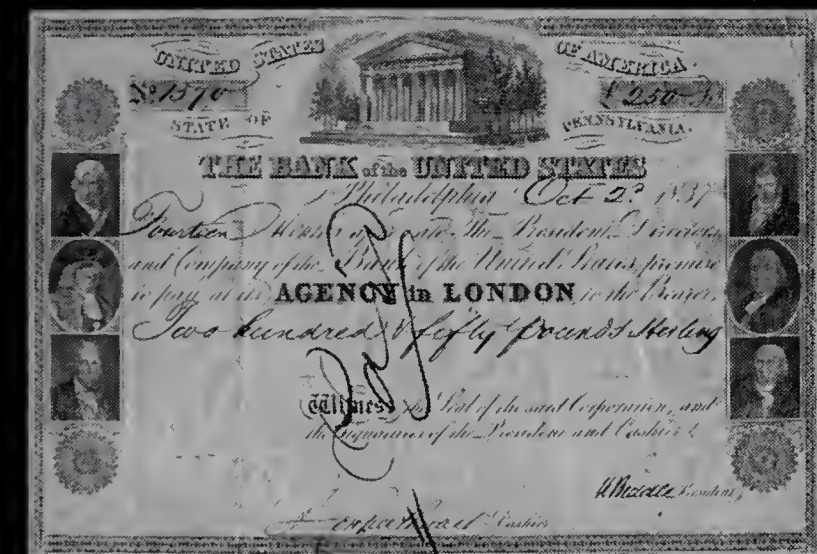 UNITED STATES OF AMERICA.
No 1570 £ 250
STATE OF PENNSYLVANIA.
THE BANK of the UNITED STATES
Philadelphia Oct 2d 1837
Fourteen Months after date The President Directors
and Company of the Bank of the United States promise
to pay at its AGENCY in LONDON to the Bearer
Two hundred & fifty pounds Sterling
Paid
Witness the Seal of the said Corporation, and
the Signatures of the President and Cashier
N Biddle President
Cashier